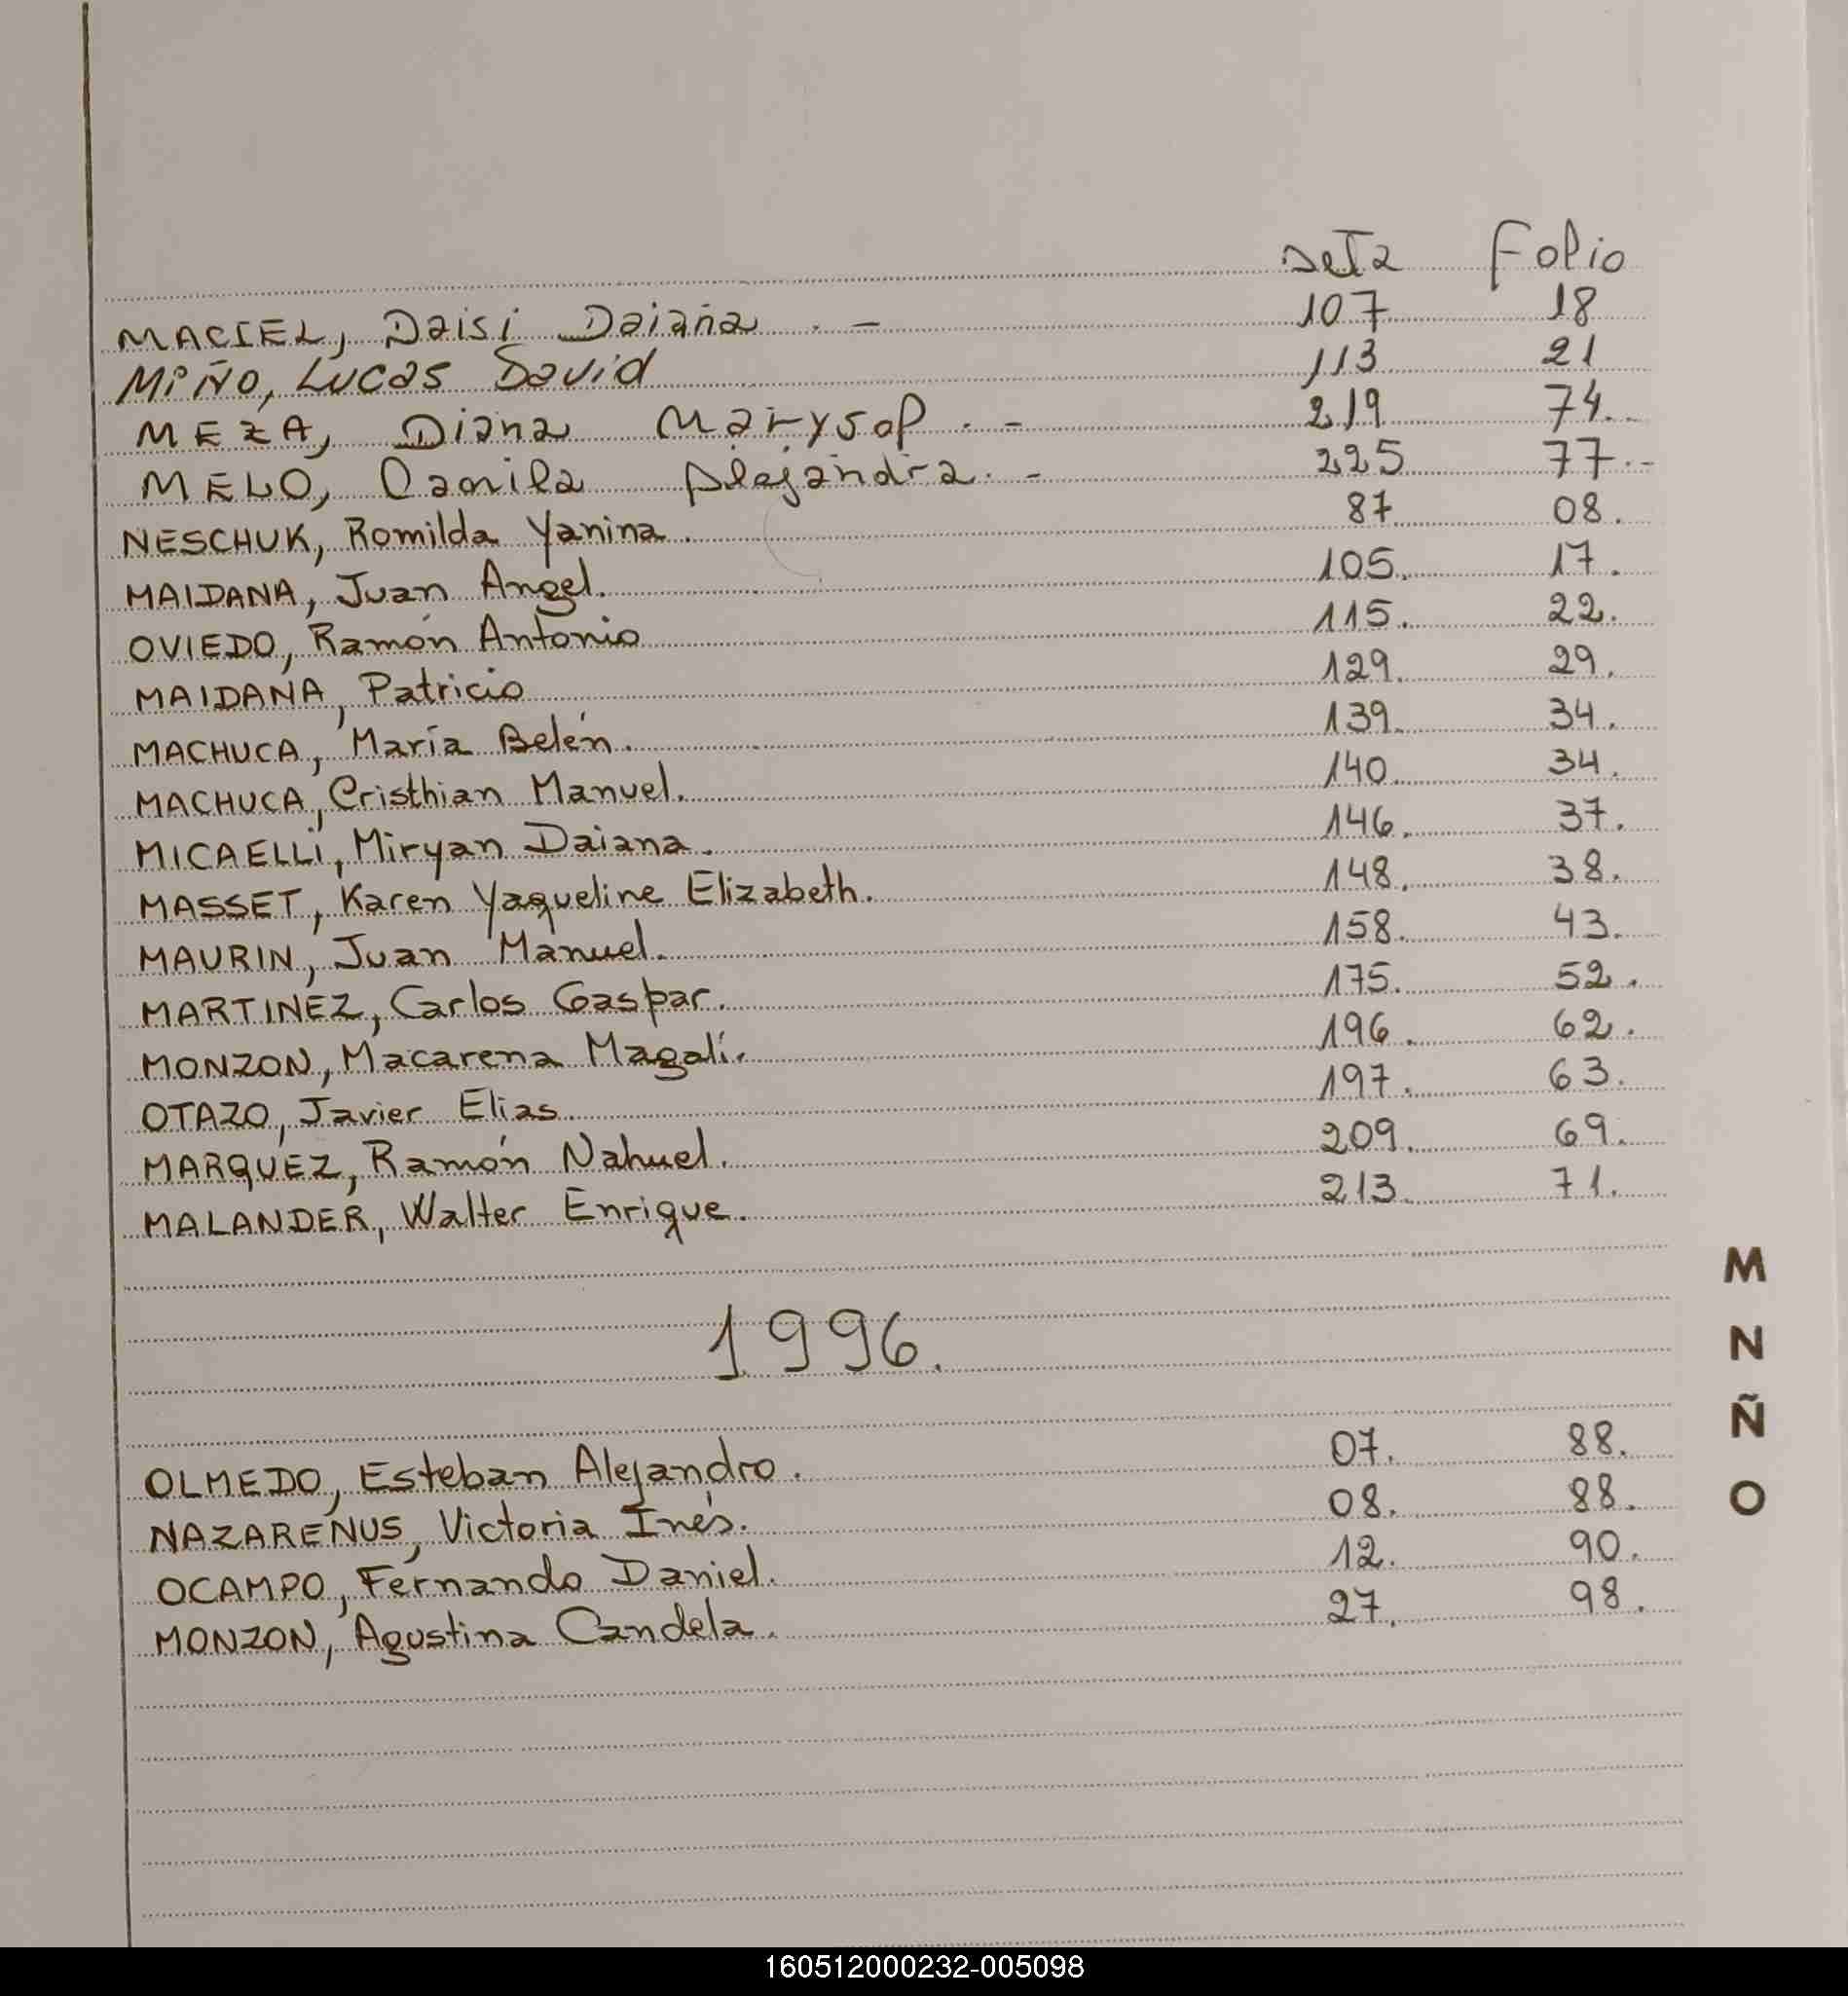 Acta Folio
MACIEL, Daisi Daiana . - 107 18
MIÑO, Lucas David 113 21
MEZA, Diana Marysol . - 219 74.
MELO, Camila Alejandra. - 225 77.-
NESCHUK, Romilda Yanina. 87 08.
MAIDANA, Juan Angel. 105. 17.
OVIEDO, Ramón Antonio 115. 22.
MAIDANA, Patricio 129. 29.
MACHUCA, María Belén. 139. 34.
MACHUCA, Cristhian Manuel. 140. 34.
MICAELLi, Miryan Daiana. 146. 37.
MASSET, Karen Yaqueline Elizabeth. 148. 38.
MAURIN, Juan Manuel. 158. 43.
MARTINEZ, Carlos Gaspar. 175. 52.
MONZON, Macarena Magalí. 196. 62.
OTAZO, Javier Elias. 197. 63.
MARQUEZ, Ramón Nahuel. 209. 69.
MALANDER, Walter Enrique. 213. 71.
1996.
OLMEDO, Esteban Alejandro. 07. 88.
NAZARENUS, Victoria Inés. 08. 88.
OCAMPO, Fernando Daniel. 12. 90.
MONZON, Agustina Candela. 27. 98.
M
N
Ñ
O
160512000232-005098